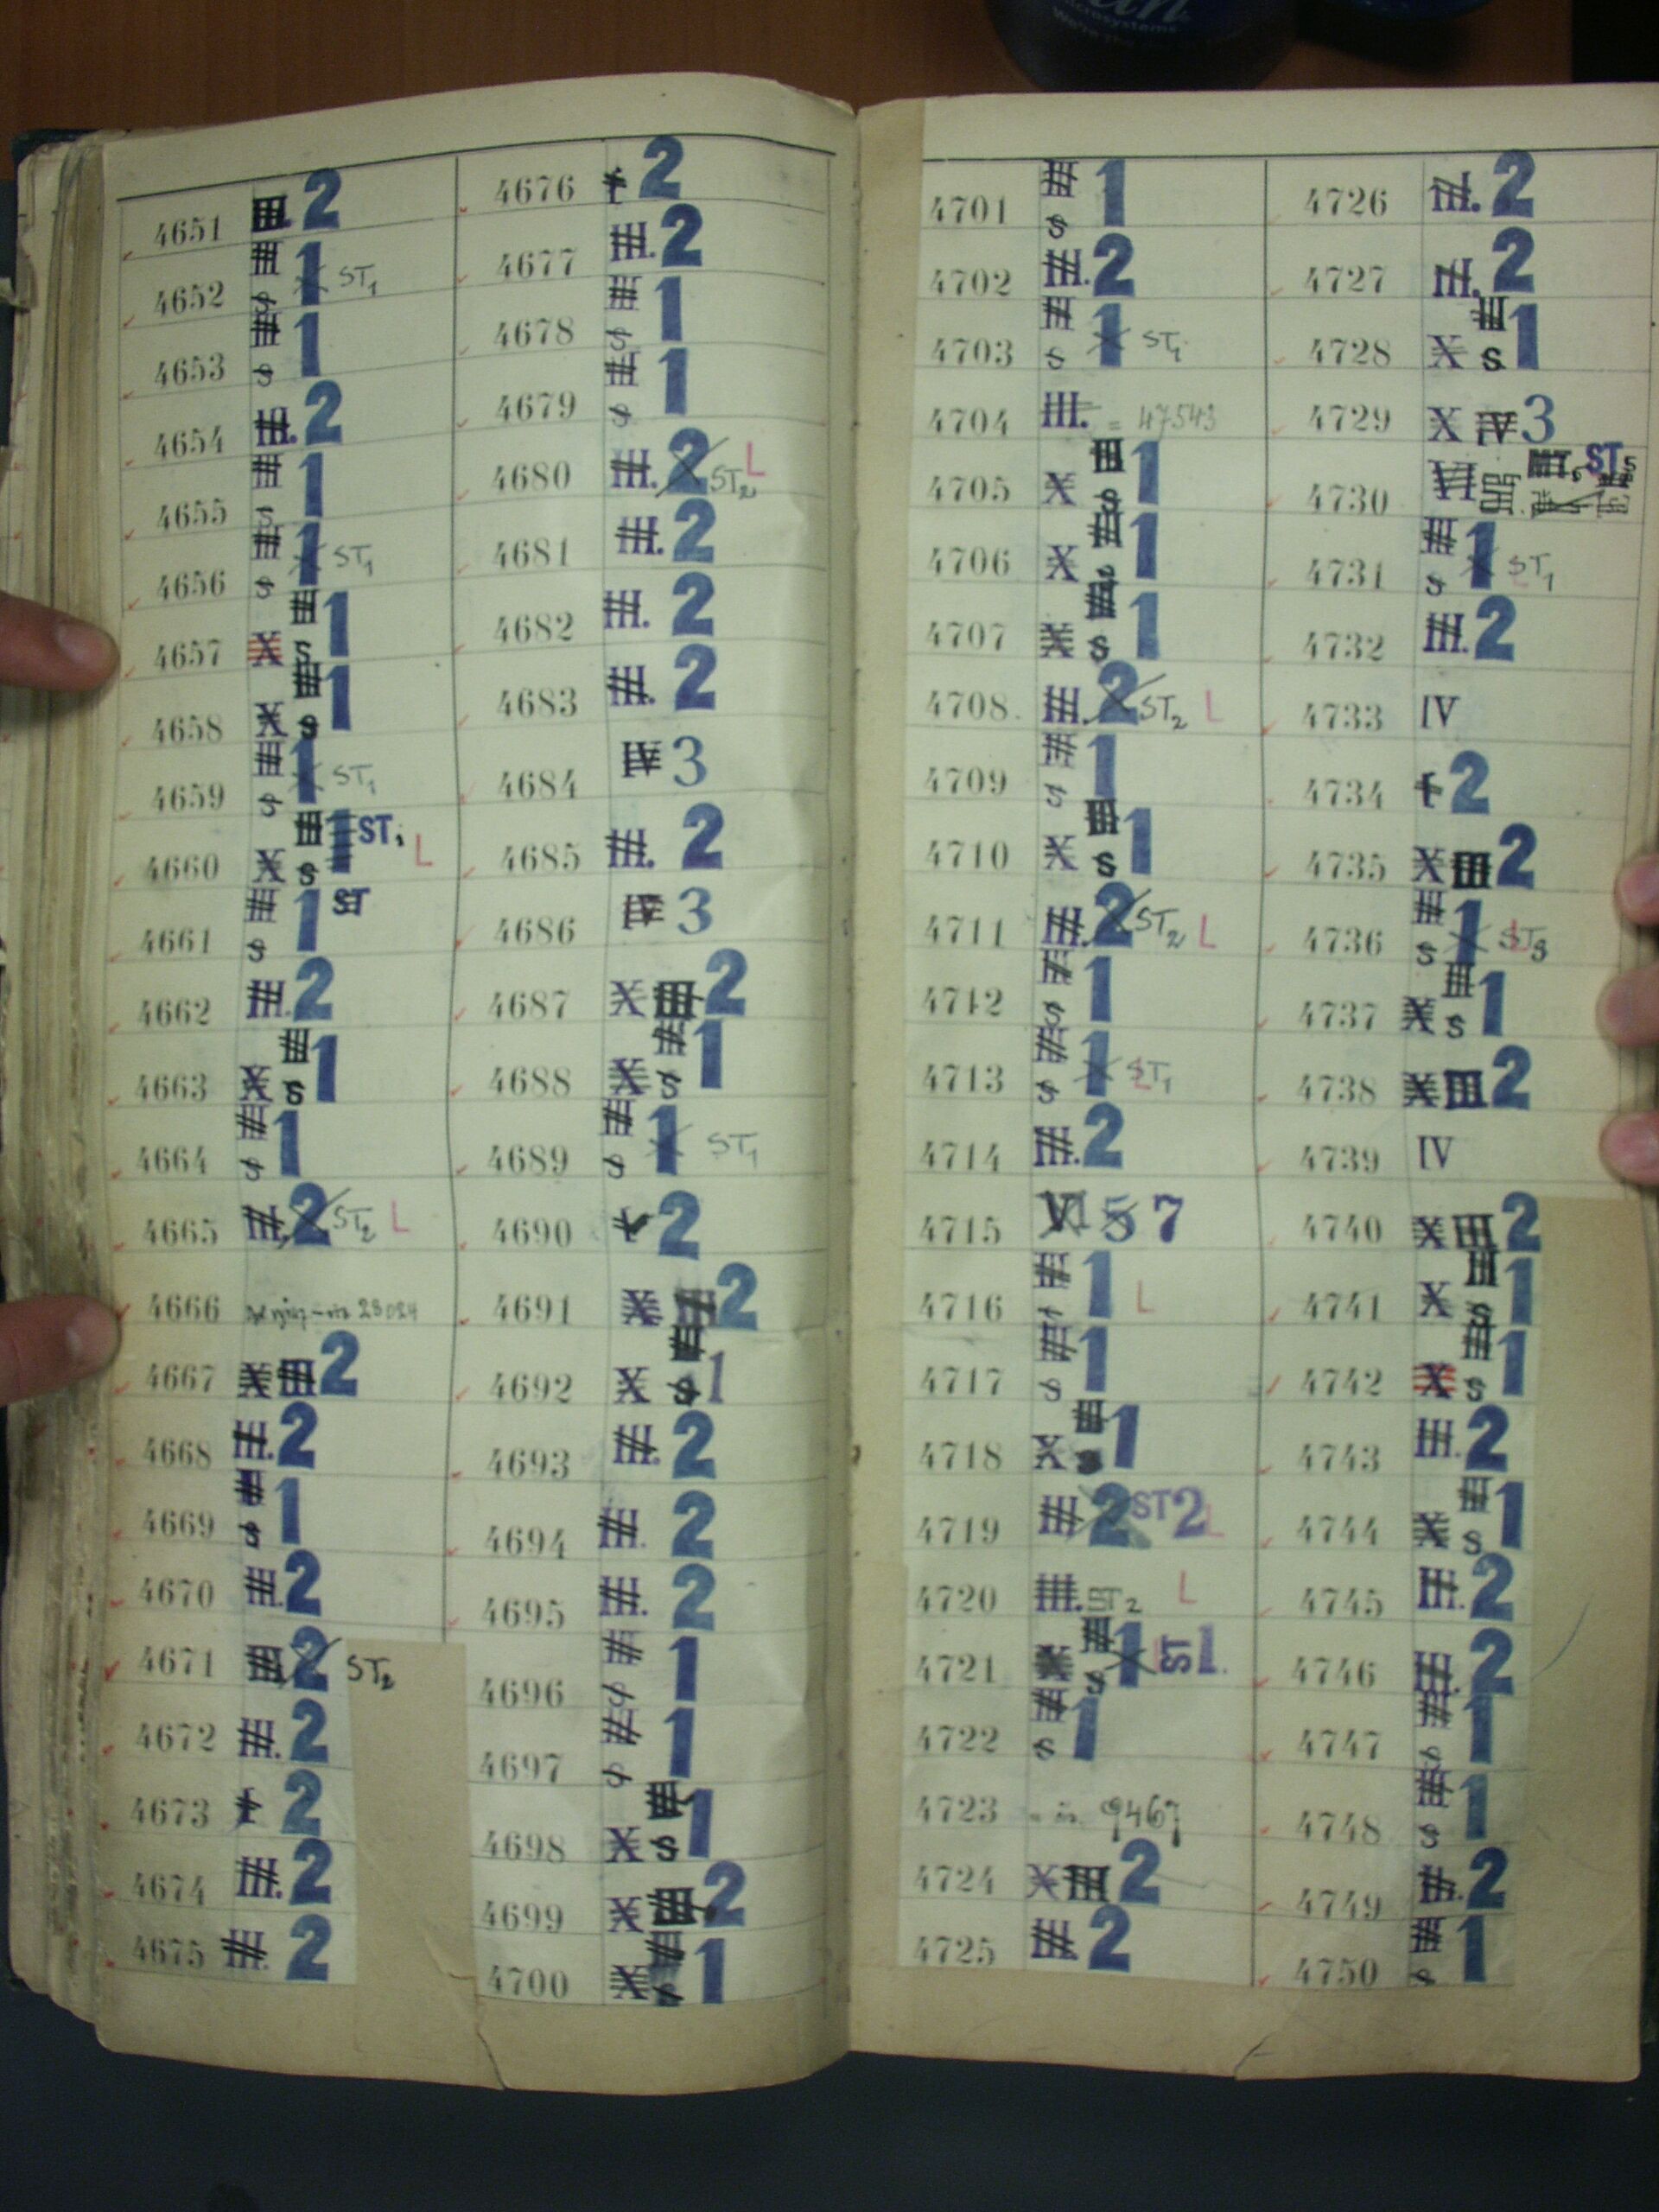 4651 III. 2
4652 III s 1 ST1
4653 III s 1
4654 III. 2
4655 III s 1
4656 III s 1 ST1
4657 X III s 1
4658 X III s 1
4659 III s 1 ST1
4660 X III s 1 ST1 L
4661 III s 1 ST
4662 III. 2
4663 X III s 1
4664 III s 1
4665 III. 2 ST2 L
4666
4667 X III 2
4668 III. 2
4669 s 1
4670 III. 2
4671 III 2 ST2
4672 III. 2
4673 2
4674 III. 2
4675 III. 2
4676 2
4677 III. 2
4678 III s 1
4679 III s 1
4680 III. 2 ST2 L
4681 III. 2
4682 III. 2
4683 III. 2
4684 IV 3
4685 III. 2
4686 IV 3
4687 X III 2
4688 X III s 1
4689 III s 1 ST1
4690 2
4691 X III 2
4692 X III s 1
4693 III. 2
4694 III. 2
4695 III. 2
4696 III s 1
4697 III s 1
4698 X III s 1
4699 X III 2
4700 X III s 1
4701 III s 1
4702 III. 2
4703 III s 1 ST1
4704 III. = 47543
4705 X III s 1
4706 X III s 1
4707 X III s 1
4708 III. 2 ST2 L
4709 III s 1
4710 X III s 1
4711 III. 2 ST2 L
4712 III s 1
4713 III s 1 ST1
4714 III. 2
4715 VI 5 7
4716 III 1 L
4717 III s 1
4718 X III s 1
4719 III 2 ST2 L
4720 III. ST2 L
4721 X III s 1 ST1.
4722 III s 1
4723 9467
4724 X III 2
4725 III 2
4726 III. 2
4727 III. 2
4728 X III s 1
4729 X IV 3
4730 VI ST5
4731 III s 1 ST1
4732 III. 2
4733 IV
4734 2
4735 X III 2
4736 III s 1 ST3
4737 X III s 1
4738 X III 2
4739 IV
4740 X III 2
4741 X III s 1
4742 X III s 1
4743 III. 2
4744 X III s 1
4745 III. 2
4746 III. 2
4747 III s 1
4748 III s 1
4749 III. 2
4750 III s 1